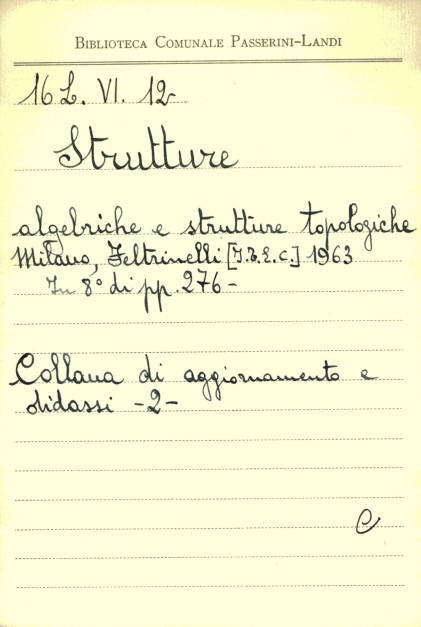 BIBLIOTECA COMUNALE PASSERINI-LANDI
16 L. VI. 12
Strutture
algebriche e strutture topologiche
Milano, Feltrinelli [I.T.E.C.] 1963
In 8° di pp. 276-
Collana di aggiornamento e
didassi -2-
C